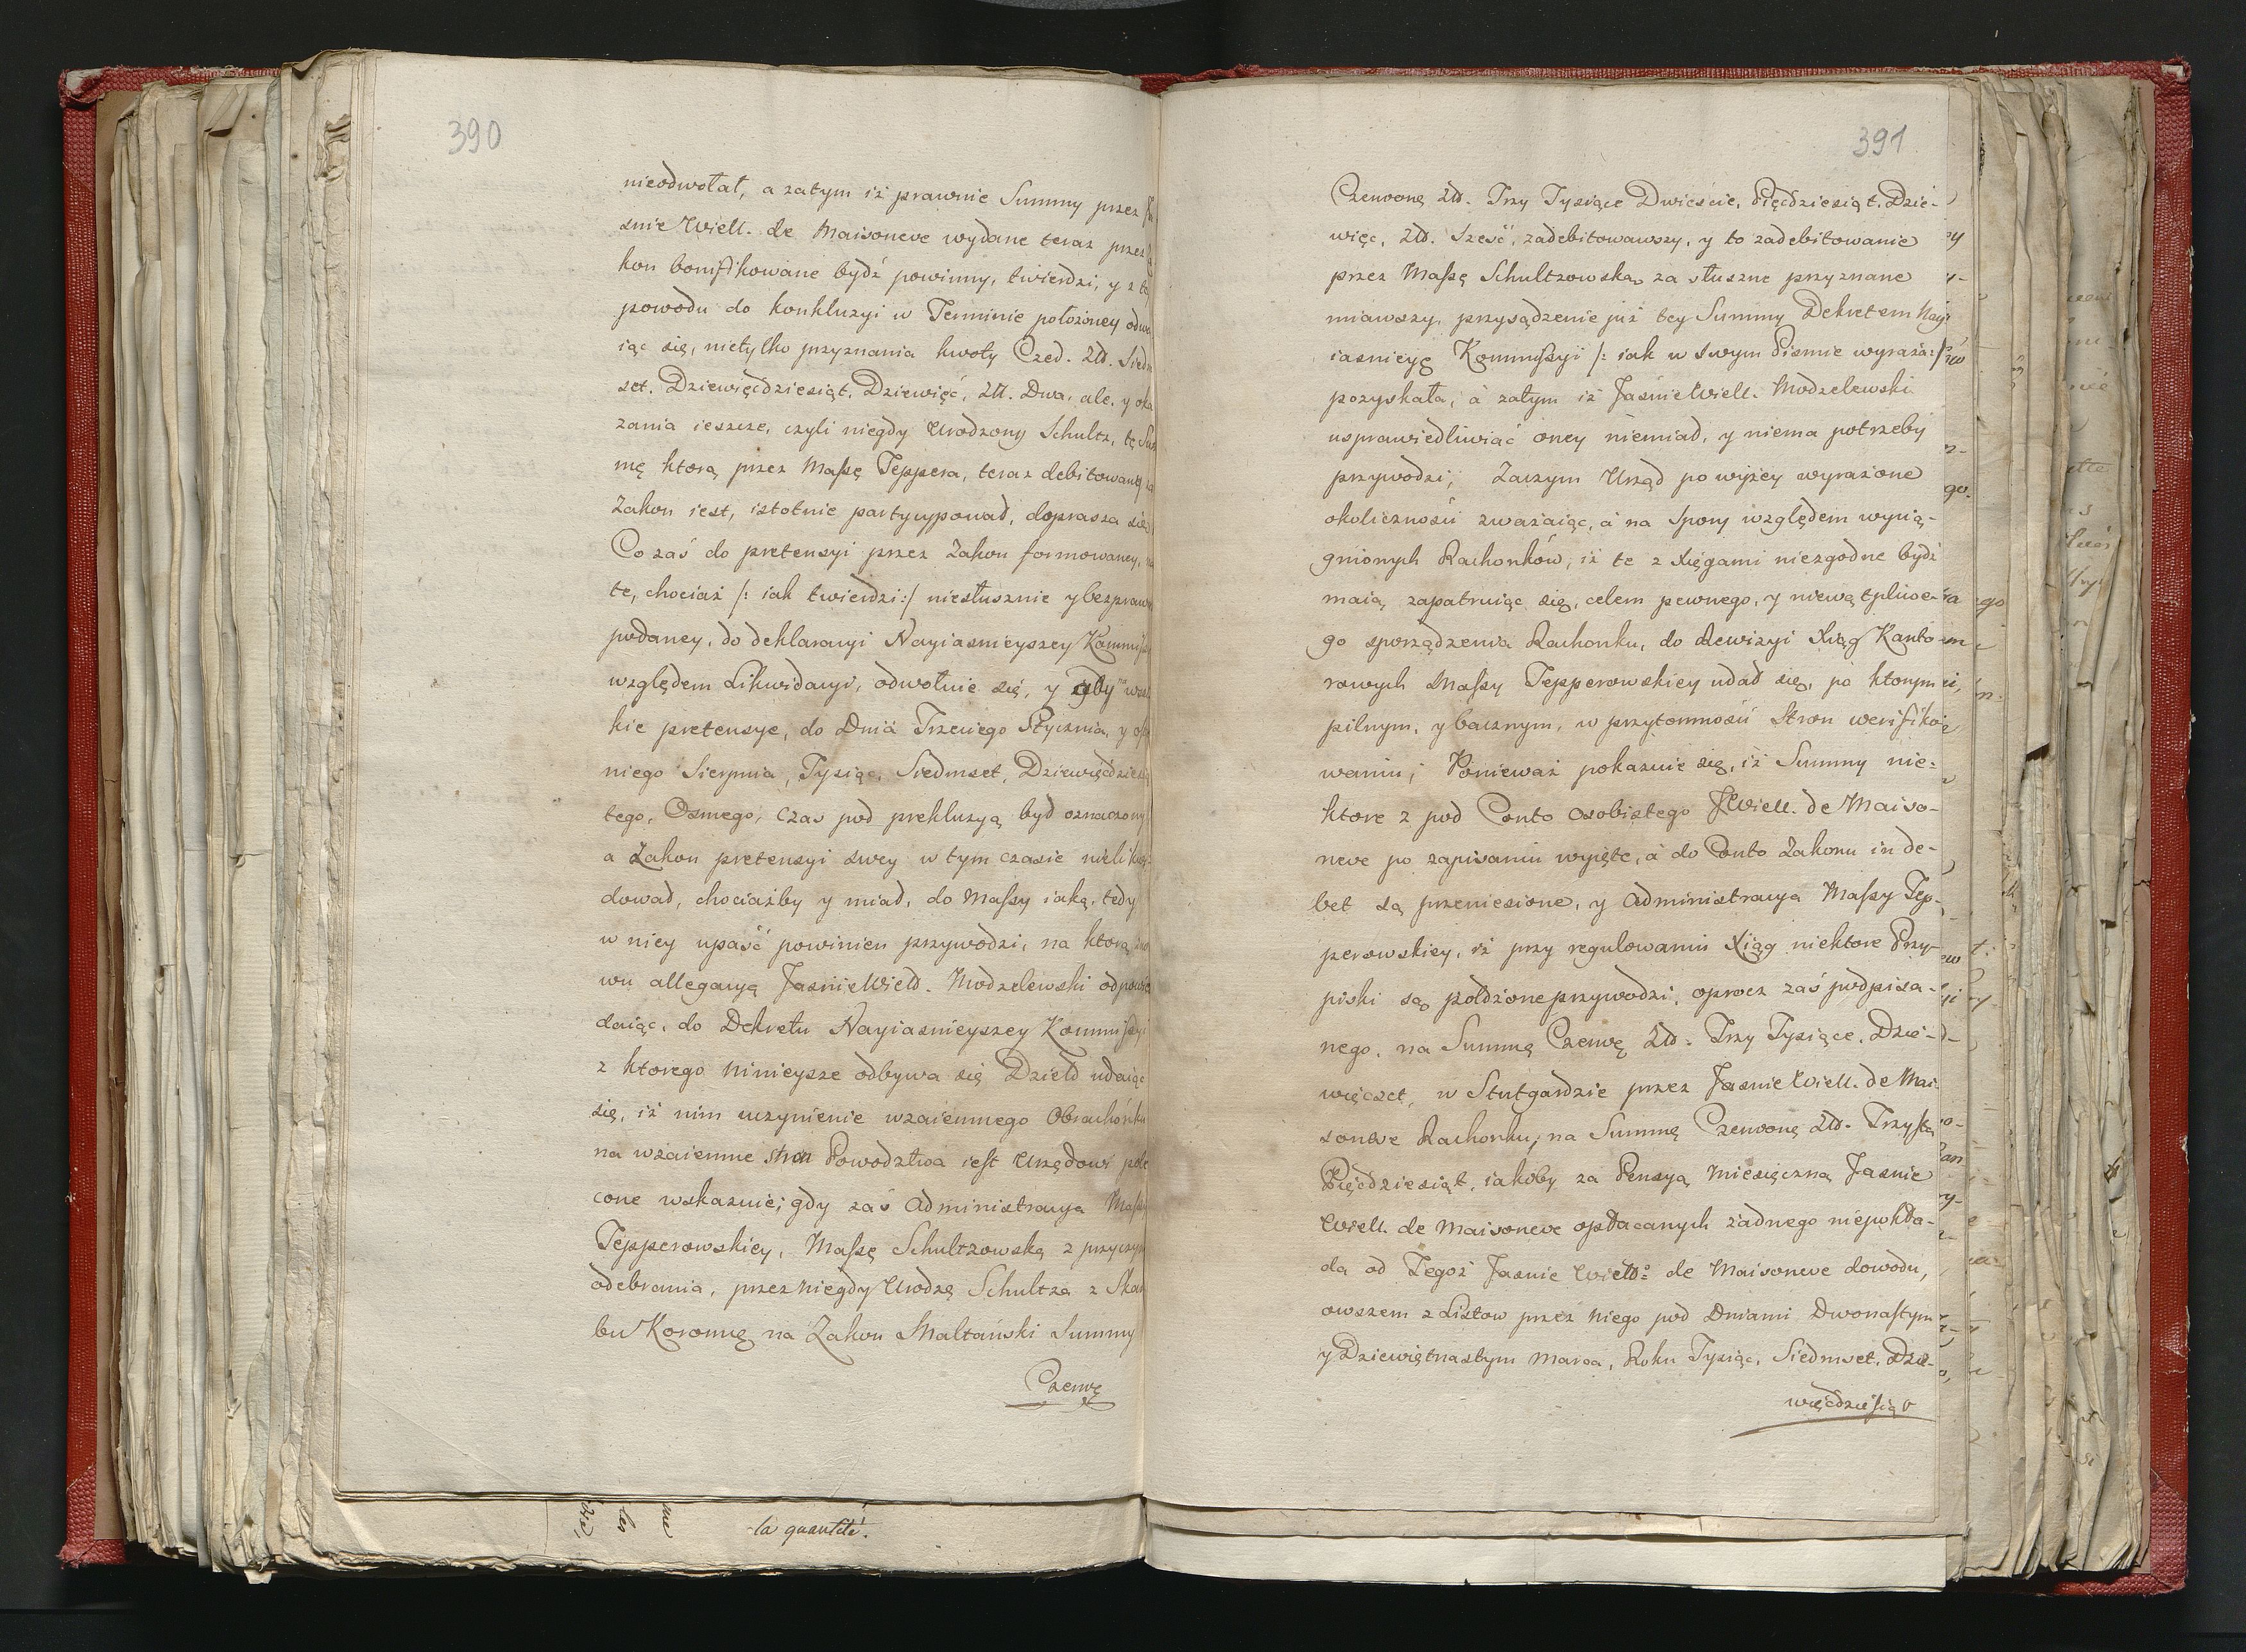 390
nieodwołał, a zatym iż prawnie Summy przez
śnie Wiell. de Maisoneve wydane teraz przez
kon bonifikowane bydź powinny, twierdzi, y z
powodu do konkluzyi w Terminie położoney
iąc się, nietylko przyznania kwoty Czed. Złł. Siedm
set. Dziewięćdziesiąt. Dziewięć, Złł. Dwa, ale. y oka
zania ieszcze, czyli niegdy Urodzony Schultz, tę Sum
mę ktorą przez Massę Teppera, teraz debitowany
Zakon iest, istotnie partycypował, doprasza się
Co zaś do pretensyi przez Zakon formowaney,
te, chociaż /: iak twierdzi :/ niesłusznie y bezpraw
podaney, do deklaracyi Nayiasnieyszey Kommiss
względem Likwidacyi, odwołuie się, y gdy na wsz
kie pretensye, do Dnia Trzeciego Stycznia, y
niego Sierpnia, Tysiąc, Siedmset, Dziewięćdzie
tego, Osmego, czas pod prekluzyą był oznaczony
a Zakon pretensyi swey w tym czasie nielikwi
dował, chociażby y miał, do Massy iaką, tedy
w niey upaść powinien przywodzi, na ktorą
wu allegacyą Jaśnie Wield. Modzelewski odpowia
daiąc, do Dekretu Nayiasnieyszey Kommissyi
z ktorego ninieysze odbywa się Dzieło udaiąc
się, iż nim uczynienie wzaiemnego Obrachónku
na wzaiemne stron Powodztwa iest Urzędowi pole
cone wskazuie; gdy zaś Administracya Massy
Tepperowskiey, Massę Schultzowską z przyczyn
odebrania, przez niegdy Urodzę Schultza z Skar
bu Koronnę na Zakon Maltański Summy
Czerwę
la quantité.
391
Czerwonę Złł. Trzy Tysiące Dwieście, Pięćdziesiąt. Dzie-
więc, Złł. Sześć, zadebitowawszy, y to zadebitowanie
przez Massę Schultzowską za słuszne przyznane
miawszy, przysądzenie już tey Summy Dekretem Nay
iasnieyę Kommissyi /: iak w swym Pismie wyraża: /
pozyskała, á zatym iż Jaśnie Wiell. Modzelewski
usprawiedliwiać oney niemiał, y niema potrzeby
przywodzi; Zaczym Urząd powyżey wyrażone
okoliczności zważaiąc, á na Spory względem wycią-
gnionych Rachonków, iż te z Xięgami niezgodne bydź
maią, zapatruiąc się, celem pewnego, y niewątpliwe-
go sporządzenia Rachonku, do Rewizyi Xiąg Kanto-
rowych Massy Tepperowskiey udał się, po ktorym
pilnym, y bacznym, w przytomności Stron werifiko
waniu; Ponieważ pokazuie się, iż Summy nie=
ktore z pod Conto osobistego JWiell. de Maiso-
neve po zapisaniu wyięte, á do Conto Zakonu in de-
bet są przeniesione, y Administracya Massy Tep-
perowskiey, iż przy regulowaniu Xiąg niektore Przy-
piski są położone przywodzi, oprocz zaś podpisa-
nego, na Summę Czerwę Złł. Trzy Tysiące, Dzie-
więcset, w Stutgardzie przez Jaśnie Wiell. de Mai-
soneve Rachonku, na Summę Czerwonę Złł. Trzysta
Pięćdziesiąt, iakoby za Pensyą Miesięczną Jaśnie
Wiell. de Maisoneve opłacanych żadnego niepokła-
da od Tegoż Jaśnie Wiell: de Maisoneve dowodu,
owszem z Listow przez niego pod Dniami Dwonastym
y Dziewiętnastym Marca, Roku Tysiąc, Siedmset. Dzie-
więćdziesiąt